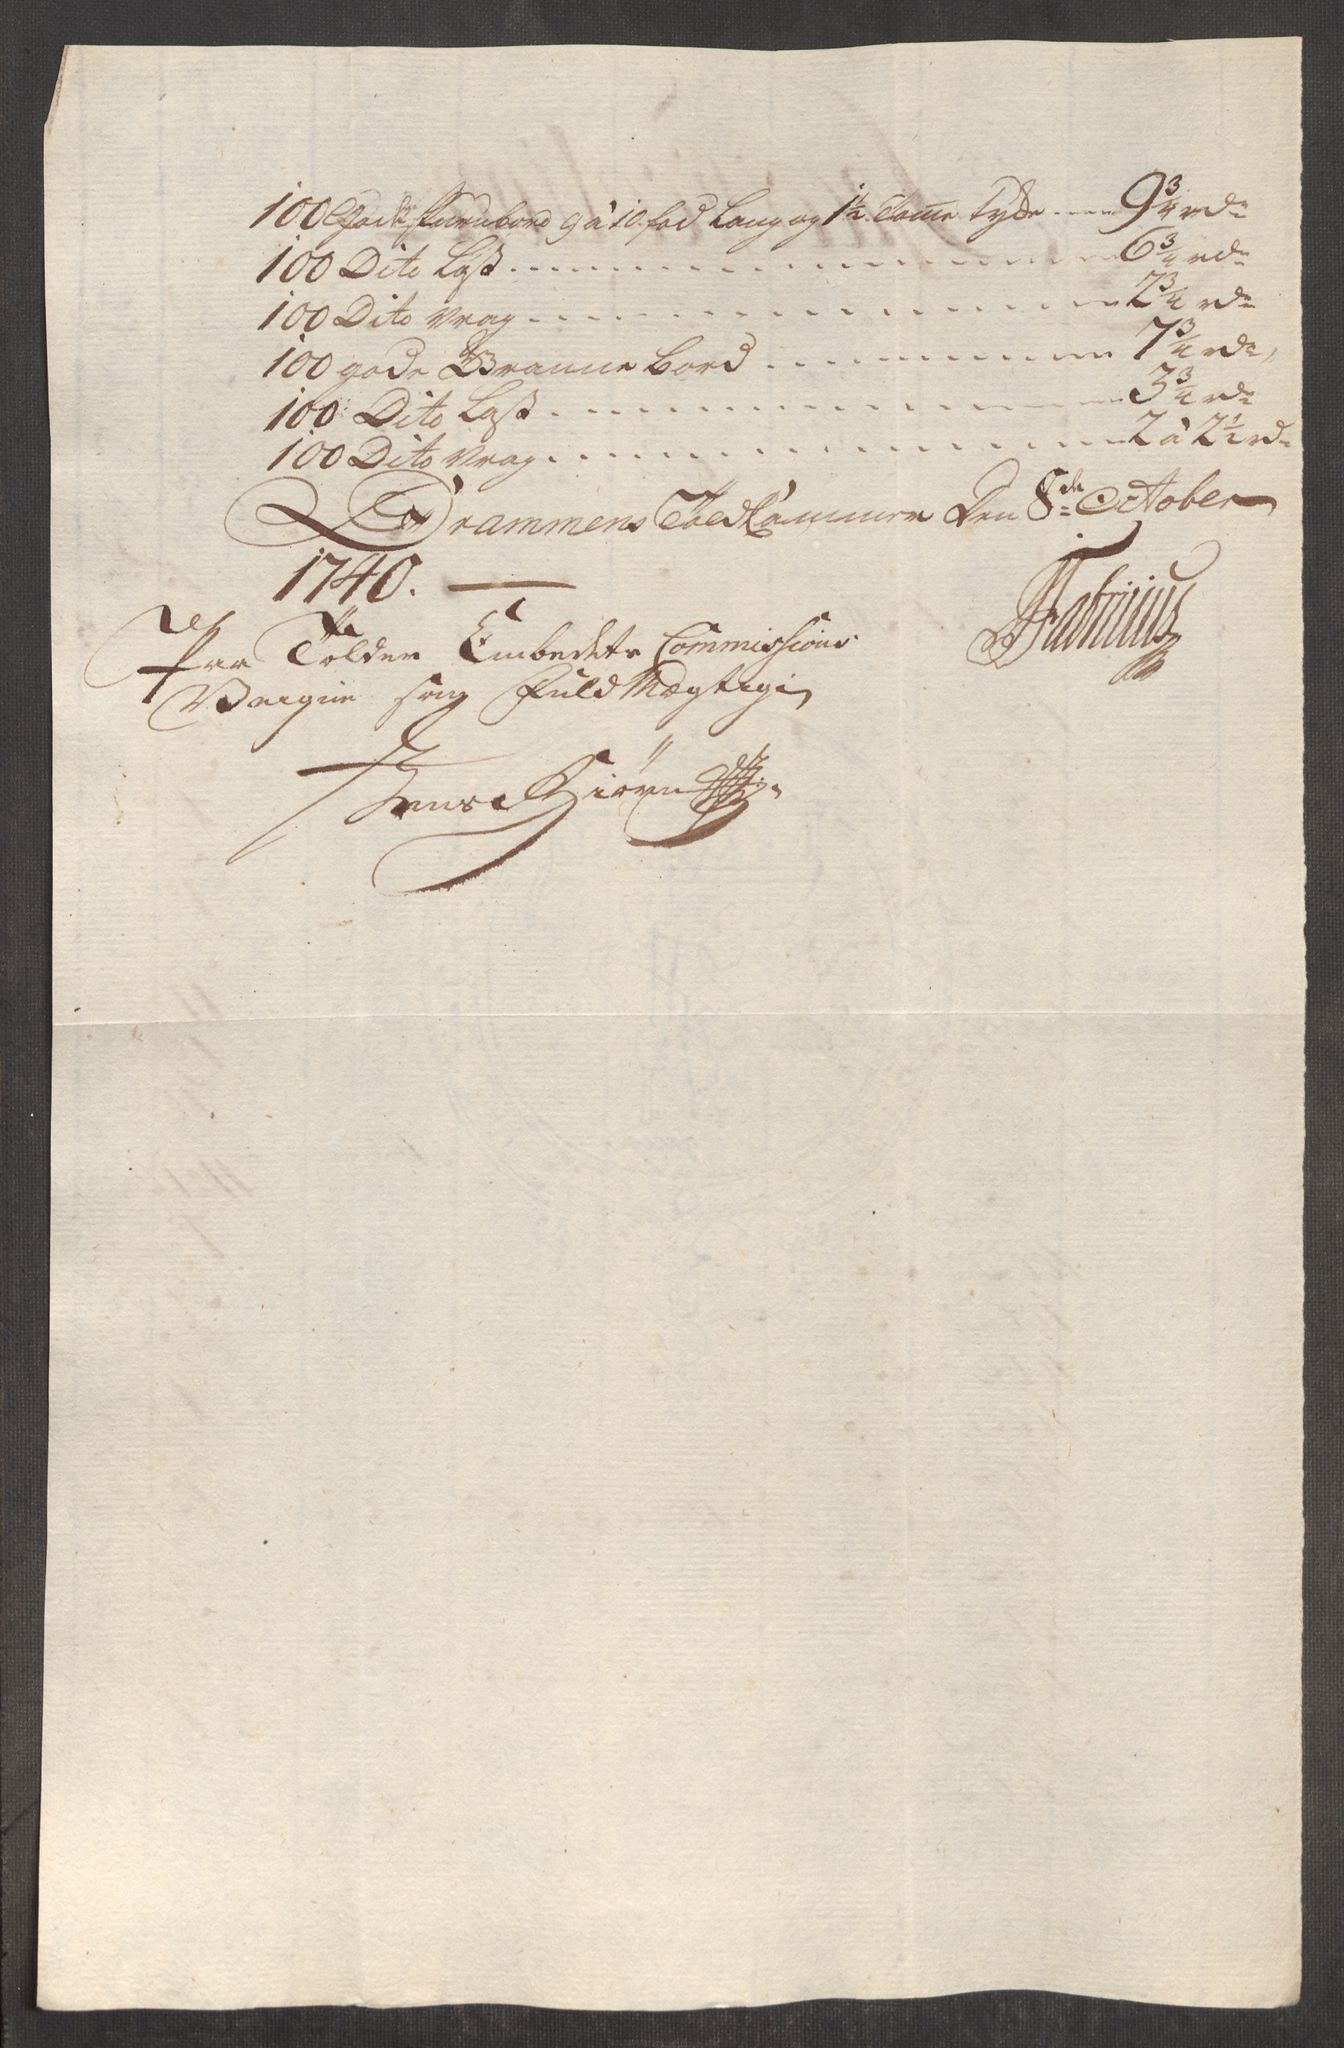 100 Gode furubord 9 à 10. fod Lang og 1½ Tomme Tyk ---- 9¾ rd:
100 Dito Last ---- 6¾ rd:
100 Dito Vrag ---- 2¾ rd:
100 gode Granne bord ---- 7¾ rd:
100 Dito Last ---- 3¾ rd:
100 Dito Vrag ---- 2 à 2½ rd:
Drammens Toldkammer Den 8de October
1740.
Fabritius
Paa Tolder Embedets Commissions
Vegne som Fuldmægtig
Jens Biørn